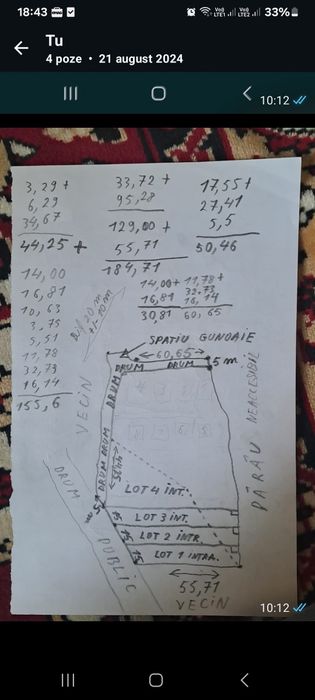 18:43
33%
Tu
4 poze • 21 august 2024
10:12
3,29 +
6,29
34,67
44,25 +
14,00
16,81
10,63
3,75
5,51
11,78
32,73
16,14
155,6
33,72 +
95,28
129,00 +
55,71
184,71
17,55 +
27,41
5,5
50,46
14,00 +
16,81
30,81
11,78 +
32,73
16,14
60,65
SPAȚIU GUNOAIE
60,65
5 m
DRUM DRUM
DRUM
DRUM DRUM
VECIN
PÂRÂU NEACCESIBIL
44,25
LOT 4 INT.
LOT 3 INT.
LOT 2 INTR
LOT 1 INTRA.
15
15
15
DRUM PUBLIC
55,71
VECIN
10:12